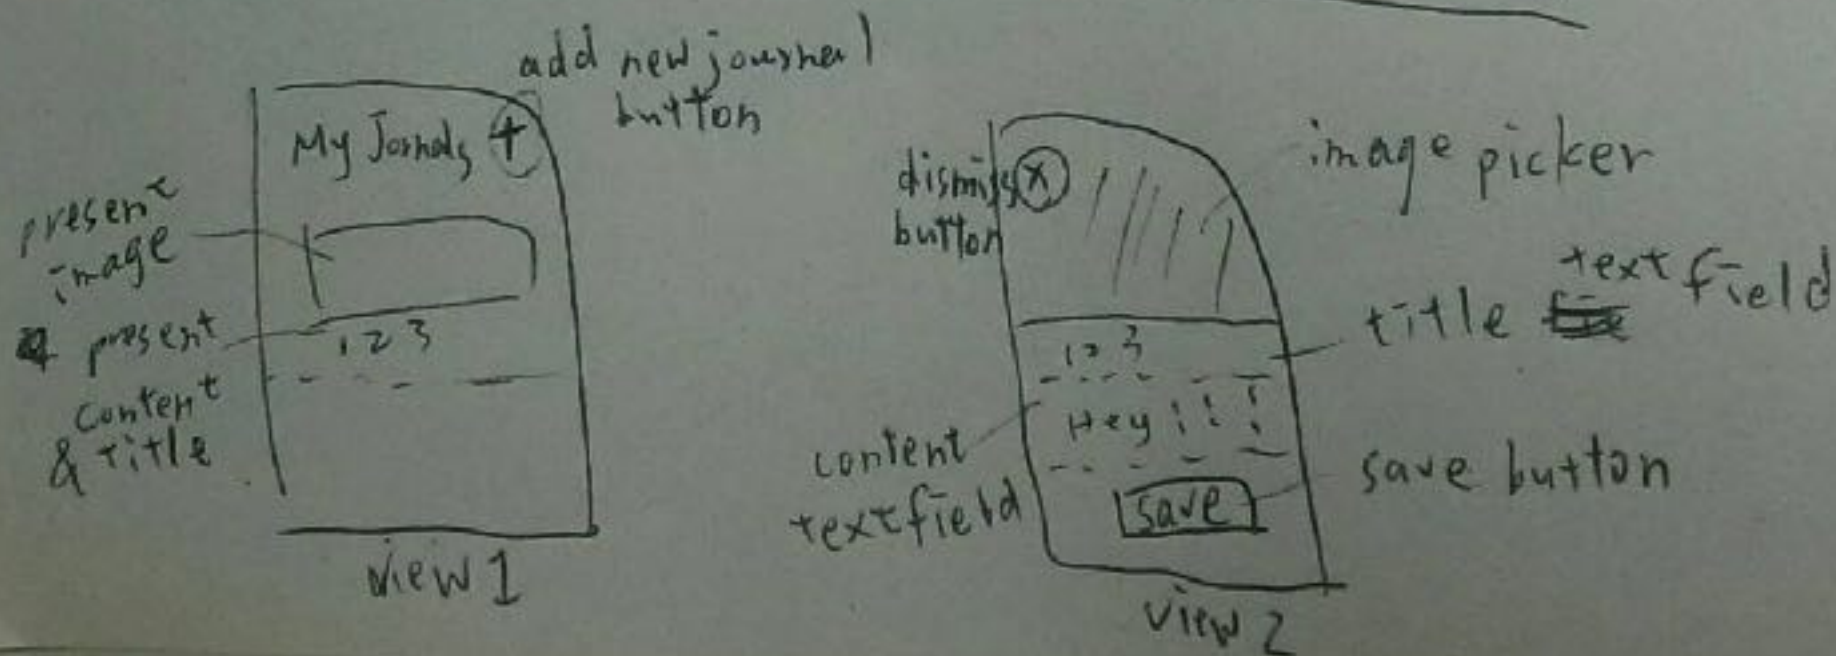 add new journal
button
My Jornals +
present
image
present
content
& title
1 2 3
view 1
dismiss X
button
image picker
title text field
1 2 3
Hey ! ! !
content
textfield
save
save button
view 2